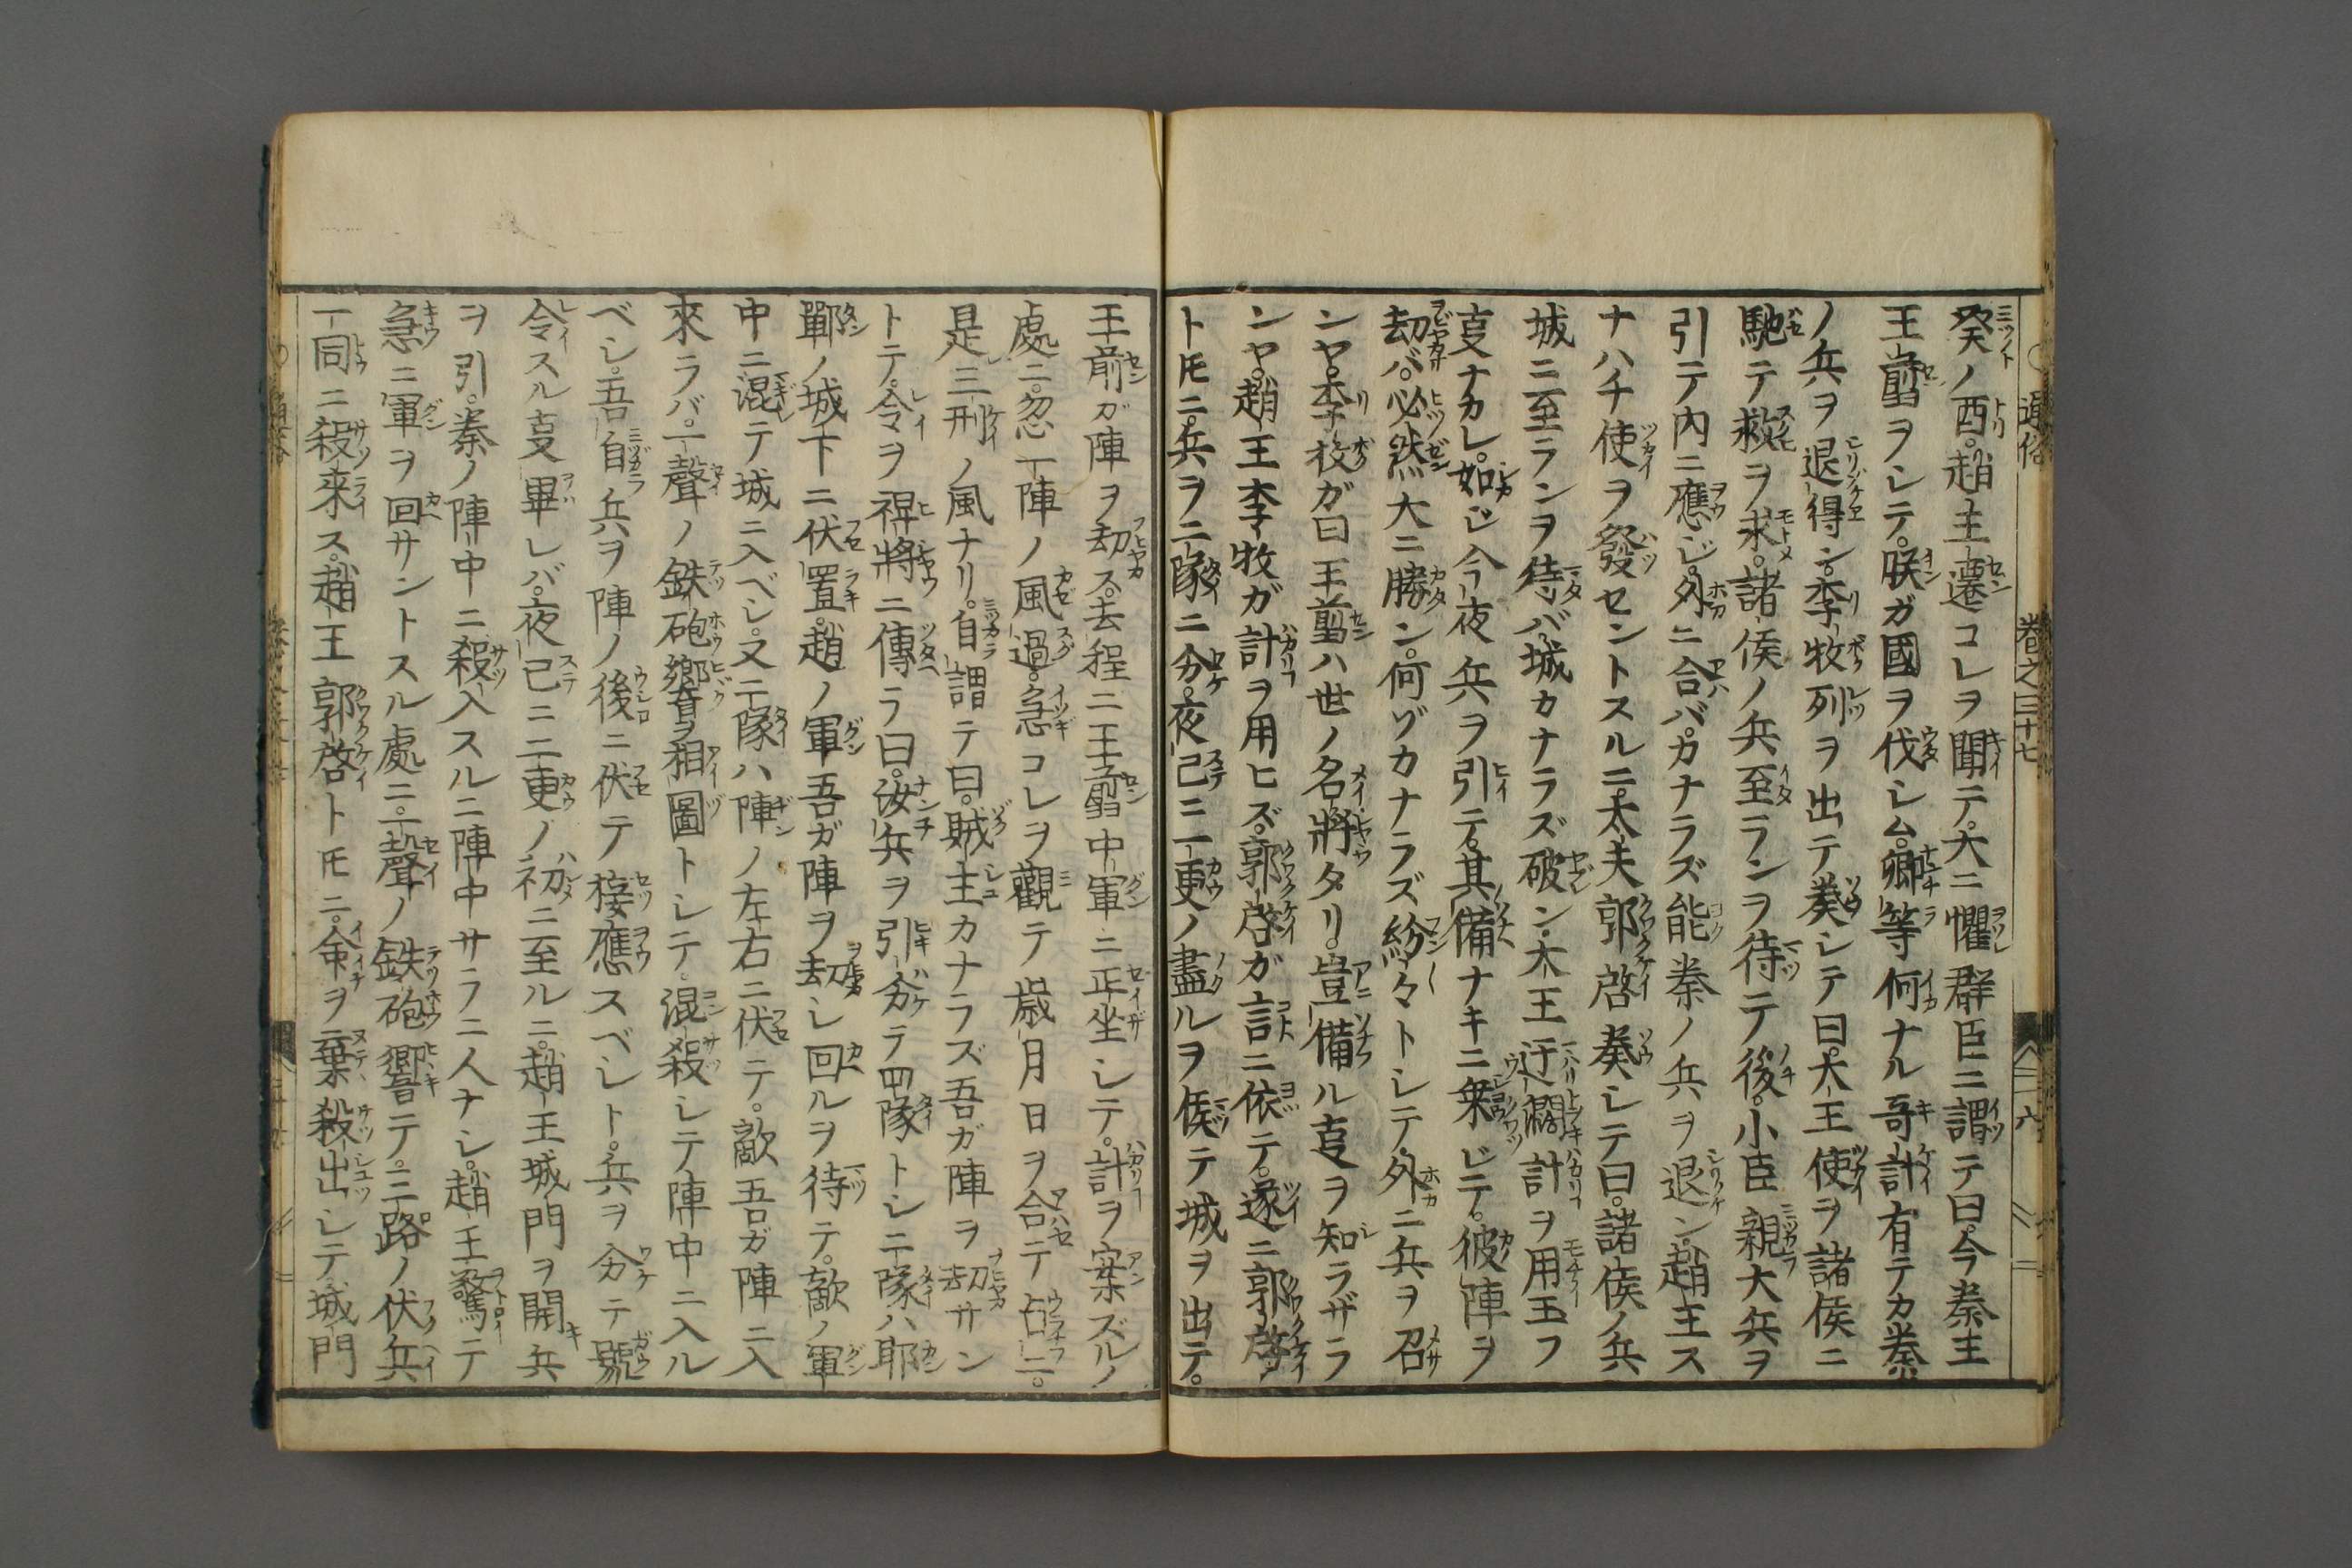 通俗 卷之三十七 六
癸ノ酉。趙王遷コレヲ聞テ。大ニ懼レ群臣ニ謂テ曰。今秦王
王翦ヲシテ。朕ガ國ヲ伐シム。卿等何ナル奇計有テカ秦
ノ兵ヲ退得ン。李牧列ヲ出テ奏シテ曰。大王使ヲ諸侯ニ
馳テ救ヲ求。諸侯ノ兵至ランヲ待テ後。小臣親大兵ヲ
引テ内ニ應ジ。外ニ合バ。カナラズ能秦ノ兵ヲ退ン。趙王ス
ナハチ使ヲ發セントスルニ。太夫郭啓奏シテ曰。諸侯ノ兵
城ニ至ランヲ待バ。城カナラズ破ン。大王迂濶計ヲ用玉フ
叓ナカレ。如ジ今夜兵ヲ引テ。其備ナキニ乗ジテ。彼陣ヲ
劫バ。必然大ニ勝ン。何ゾカナラズ紛々トシテ。外ニ兵ヲ召
ンヤ。李牧ガ曰王翦ハ世ノ名將タリ。豈備ル叓ヲ知ラザラ
ンヤ。趙王李牧ガ計ヲ用ヒズ。郭啓ガ言ニ依テ。遂ニ郭啓
トモニ。兵ヲ二隊ニ分。夜已ニ一更ノ盡ルヲ俟テ城ヲ出テ。
王翦ガ陣ヲ劫ス。去程ニ王翦中軍ニ正坐シテ。計ヲ案ズルノ
處ニ。忽一陣ノ風過。急コレヲ觀テ歳月日ヲ合テ占ニ。
是三刑ノ風ナリ。自謂テ曰。賊主カナラズ吾ガ陣ヲ劫サン
トテ。令ヲ裨將ニ傳ラ曰。汝兵ヲ引分ラ四隊トシ二隊ハ邯
鄲ノ城下ニ伏置。趙ノ軍吾ガ陣ヲ劫シ回ルヲ待テ。敵ノ軍
中ニ混テ城ニ入ベシ。又二隊ハ陣ノ左右ニ伏テ。敵吾ガ陣ニ入
來ラバ。一聲ノ鉄砲響ヲ相圖トシテ。混殺シテ陣中ニ入ル
ベシ。吾自兵ヲ陣ノ後ニ伏テ接應スベシト。兵ヲ分テ號
令スル叓畢レバ。夜已ニ二更ノ初ニ至ルニ。趙王城門ヲ開兵
ヲ引。秦ノ陣中ニ殺入スルニ陣中サラニ人ナシ。趙王驚テ
急ニ軍ヲ回サントスル處ニ。一聲ノ鉄砲響テ。三路ノ伏兵
一同ニ殺来ス。趙王郭啓トモニ。命ヲ棄殺出シテ城門